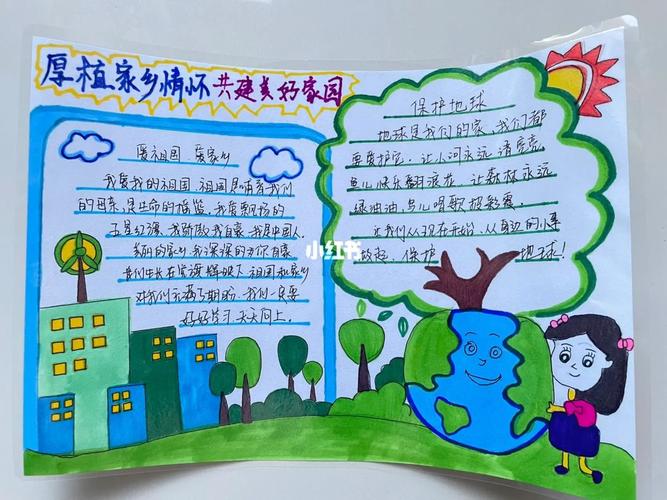 厚植家乡情怀 共建美好家园
爱祖国 爱家乡
我爱我的祖国,祖国是哺育我们
的母亲,是生命的摇篮,我爱飘扬的
五星红旗,我骄傲我自豪,我是中国人.
美丽的家乡,我深深的为你自豪
我们生长在党旗下,祖国和家乡
对我们充满了期盼,我们一定要
好好学习 天天向上.
保护地球
地球是我们的家,我们都
要爱护它.让小河永远清亮亮.
鱼儿快乐翻浪花.让森林永远
绿油油,鸟儿唱歌披彩霞.
让我们从现在开始,从身边的小事
做起,保护地球!
小红书